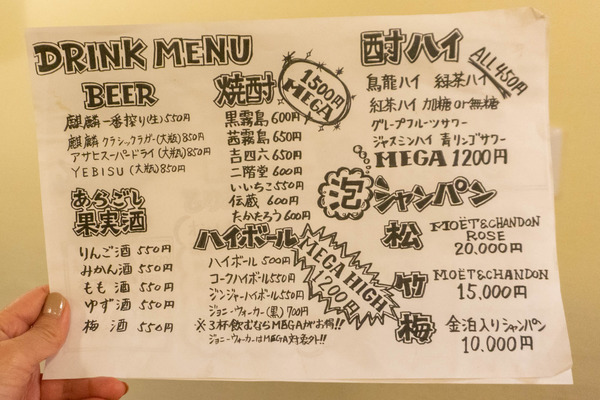 DRINK MENU
BEER
麒麟一番搾り(生)550円
麒麟クラシックラガー(大瓶)850円
アサヒスーパードライ(大瓶)850円
YEBISU(大瓶)850円
あらごし
果実酒
りんご酒 550円
みかん酒 550円
もも酒 550円
ゆず酒 550円
梅酒 550円
焼酎
1500円
MEGA
黒霧島 600円
茜霧島 650円
吉四六 650円
二階堂 600円
いいちこ 550円
伝蔵 600円
たかたろう 600円
ハイボール
ハイボール 500円
コークハイボール 550円
ジンジャーハイボール 550円
ジョニーウォーカー(黒) 700円
※3杯飲むならMEGAがお得!!
ジョニーウォーカーはMEGA対象外!!
MEGA HIGH
1200円
酎ハイ
ALL 450円
烏龍ハイ 緑茶ハイ
紅茶ハイ 加糖or無糖
グレープフルーツサワー
ジャスミンハイ 青リンゴサワー
MEGA 1200円
泡 シャンパン
松 MOËT&CHANDON
ROSE
20,000円
竹 MOËT&CHANDON
15,000円
梅 金泊入りシャンパン
10,000円